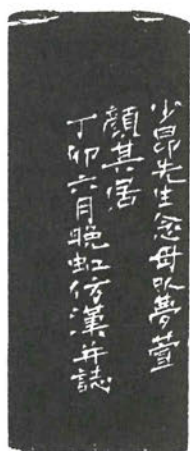 少昂先生念母以夢萱
顏其居
丁卯六月晚虹仿漢并誌